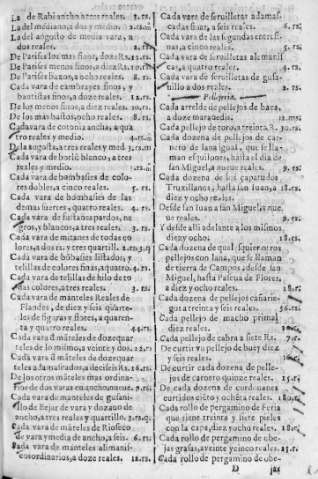 La de Rabi ancho a tres reales. 3.rs.
La del angosto de media vara, a
dos reales. 2.rs.
De Parisa bazos, a ocho reales. 8.rs.
Cada vara de cambrayes finos, y
bautistas finos, a doze reales. 12.rs.
De los menos finos, a diez reales. 10.rs.
De los mas bastos, ocho reales. 8.rs.
Cada vara de cotonia ancha, a qua
tro reales y medio.
reales y medio.
Cada vara de bombasies de colo-
res dobles, a cinco reales. 5.rs.
Cada vara de bombasies de las
demas suertes, quatro reales. 4.rs.
Cada vara de fustanes pardos, ne
gros, y blancos, a tres reales. 3.rs.
Cada vara de mitanes de todas co
lores, a dos rs. y tres quartill.
Cada vara de bōbasies listados, y
telillas de colores finas, a quatro. 4.rs.
Cada vara de telillas de hilo de to
das colores, a tres reales. 3.rs.
Cada vara de manteles Reales de
Flandes, de diez y seis quarte-
los de figuras y flores, a quaren-
ta y quatro reales. 44.rs.
Cada vara de māteles de doze quar
teles de lo mismo, a veinte y dos. 22.rs.
Cada vara de māteles de doze quar
teles adamascados, a deciseis Rs. 16.rs.
De los otros māteles mas ordina-
rios de dos varas
Cada vara de manteles de gusani-
llo de Bejar de vara y dozavo de
ancho, a tres reales y quartillo.
Cada vara de māteles de Rioseco
de vara y media de ancho, a seis. 6.rs.
Cada vara de manteles alimanis-
cos ordinarios, a doze reales. 12.rs.
Cada vara de servilletas adamas-
cadas finas, a seis reales. 6.rs.
Cada vara de las segundas entrefi-
nas, a cinco reales. 5.rs.
Cada vara de servilletas alemanis
cas, a quatro reales. 4.rs.
Cada vara de servilletas de gusa-
nillo a dos reales. 2.rs.
Pellejeria.
Cada arrelde de pellejos de baca,
a doze maravedis. 12.ms.
Cada pellejo de toro, a treinta R. 30.rs.
Cada dozena de pellejos de car-
nero de lana igual, que se lla-
man esquilones, hasta el dia de
san Miguel, a nueve reales. 9.rs.
Truxillanos, hasta san Juan, a 18.rs.
diez y ocho reales.
Desde san Juan a san Miguel, nue
ve reales. 9.rs.
Y desde alli adelante a los mismos,
diez y ocho. 18.rs.
Cada dozena de qualesquier otros
pellejos con lana, que se llaman
de tierra de Campos, desde san
Miguel, hasta Pascua de Flores,
a diez y ocho reales. 18.rs.
Cada dozena de pellejos cañarie-
gos a treinta y seis reales. 36.rs.
Cada pellejo de macho primal
diez reales. 10.rs.
Cada pellejo de cabra a siete Rs. 7.rs.
De curtir vn pellejo de buey diez
y seis reales. 16.rs.
De curtir cada dozena de pelle-
jos de carnero quinze reales. 15.rs.
De cada dozena de cordovanes
curtidos ciento y ochēta reales. 180.rs.
Cada rollo de pergamino de Feria
que tiene treinta y siete pieles
con la capa, diez y ocho reales. 18.rs.
Cada rollo de pergamino de obe-
jas grasas, a veinte y cinco reales. 25.rs.
Cada rollo de pergamino de obe-
D jas